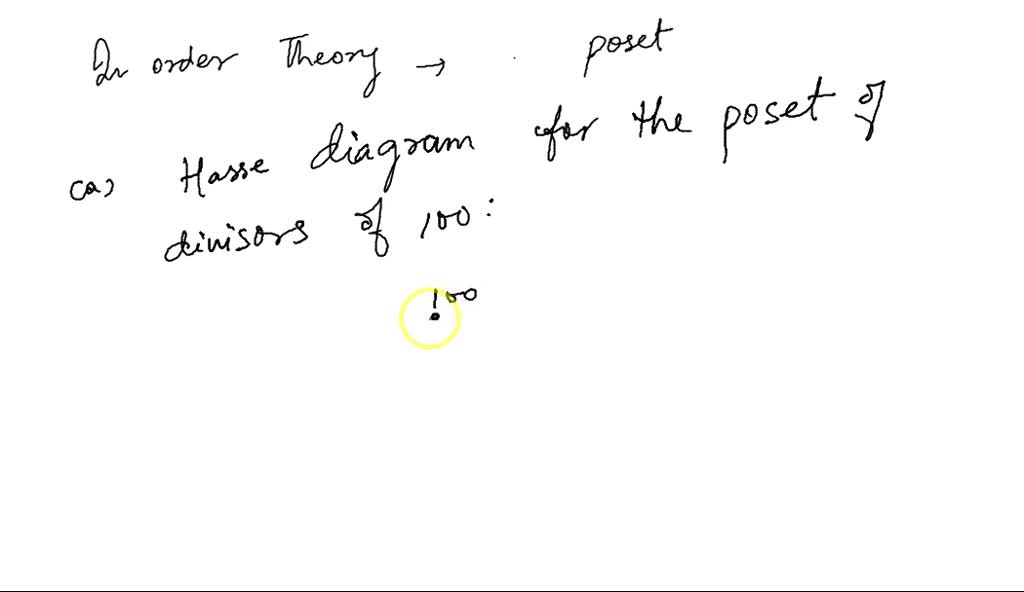 In order Theory → poset
(a) Hasse diagram for the poset of
divisors of 100:
100